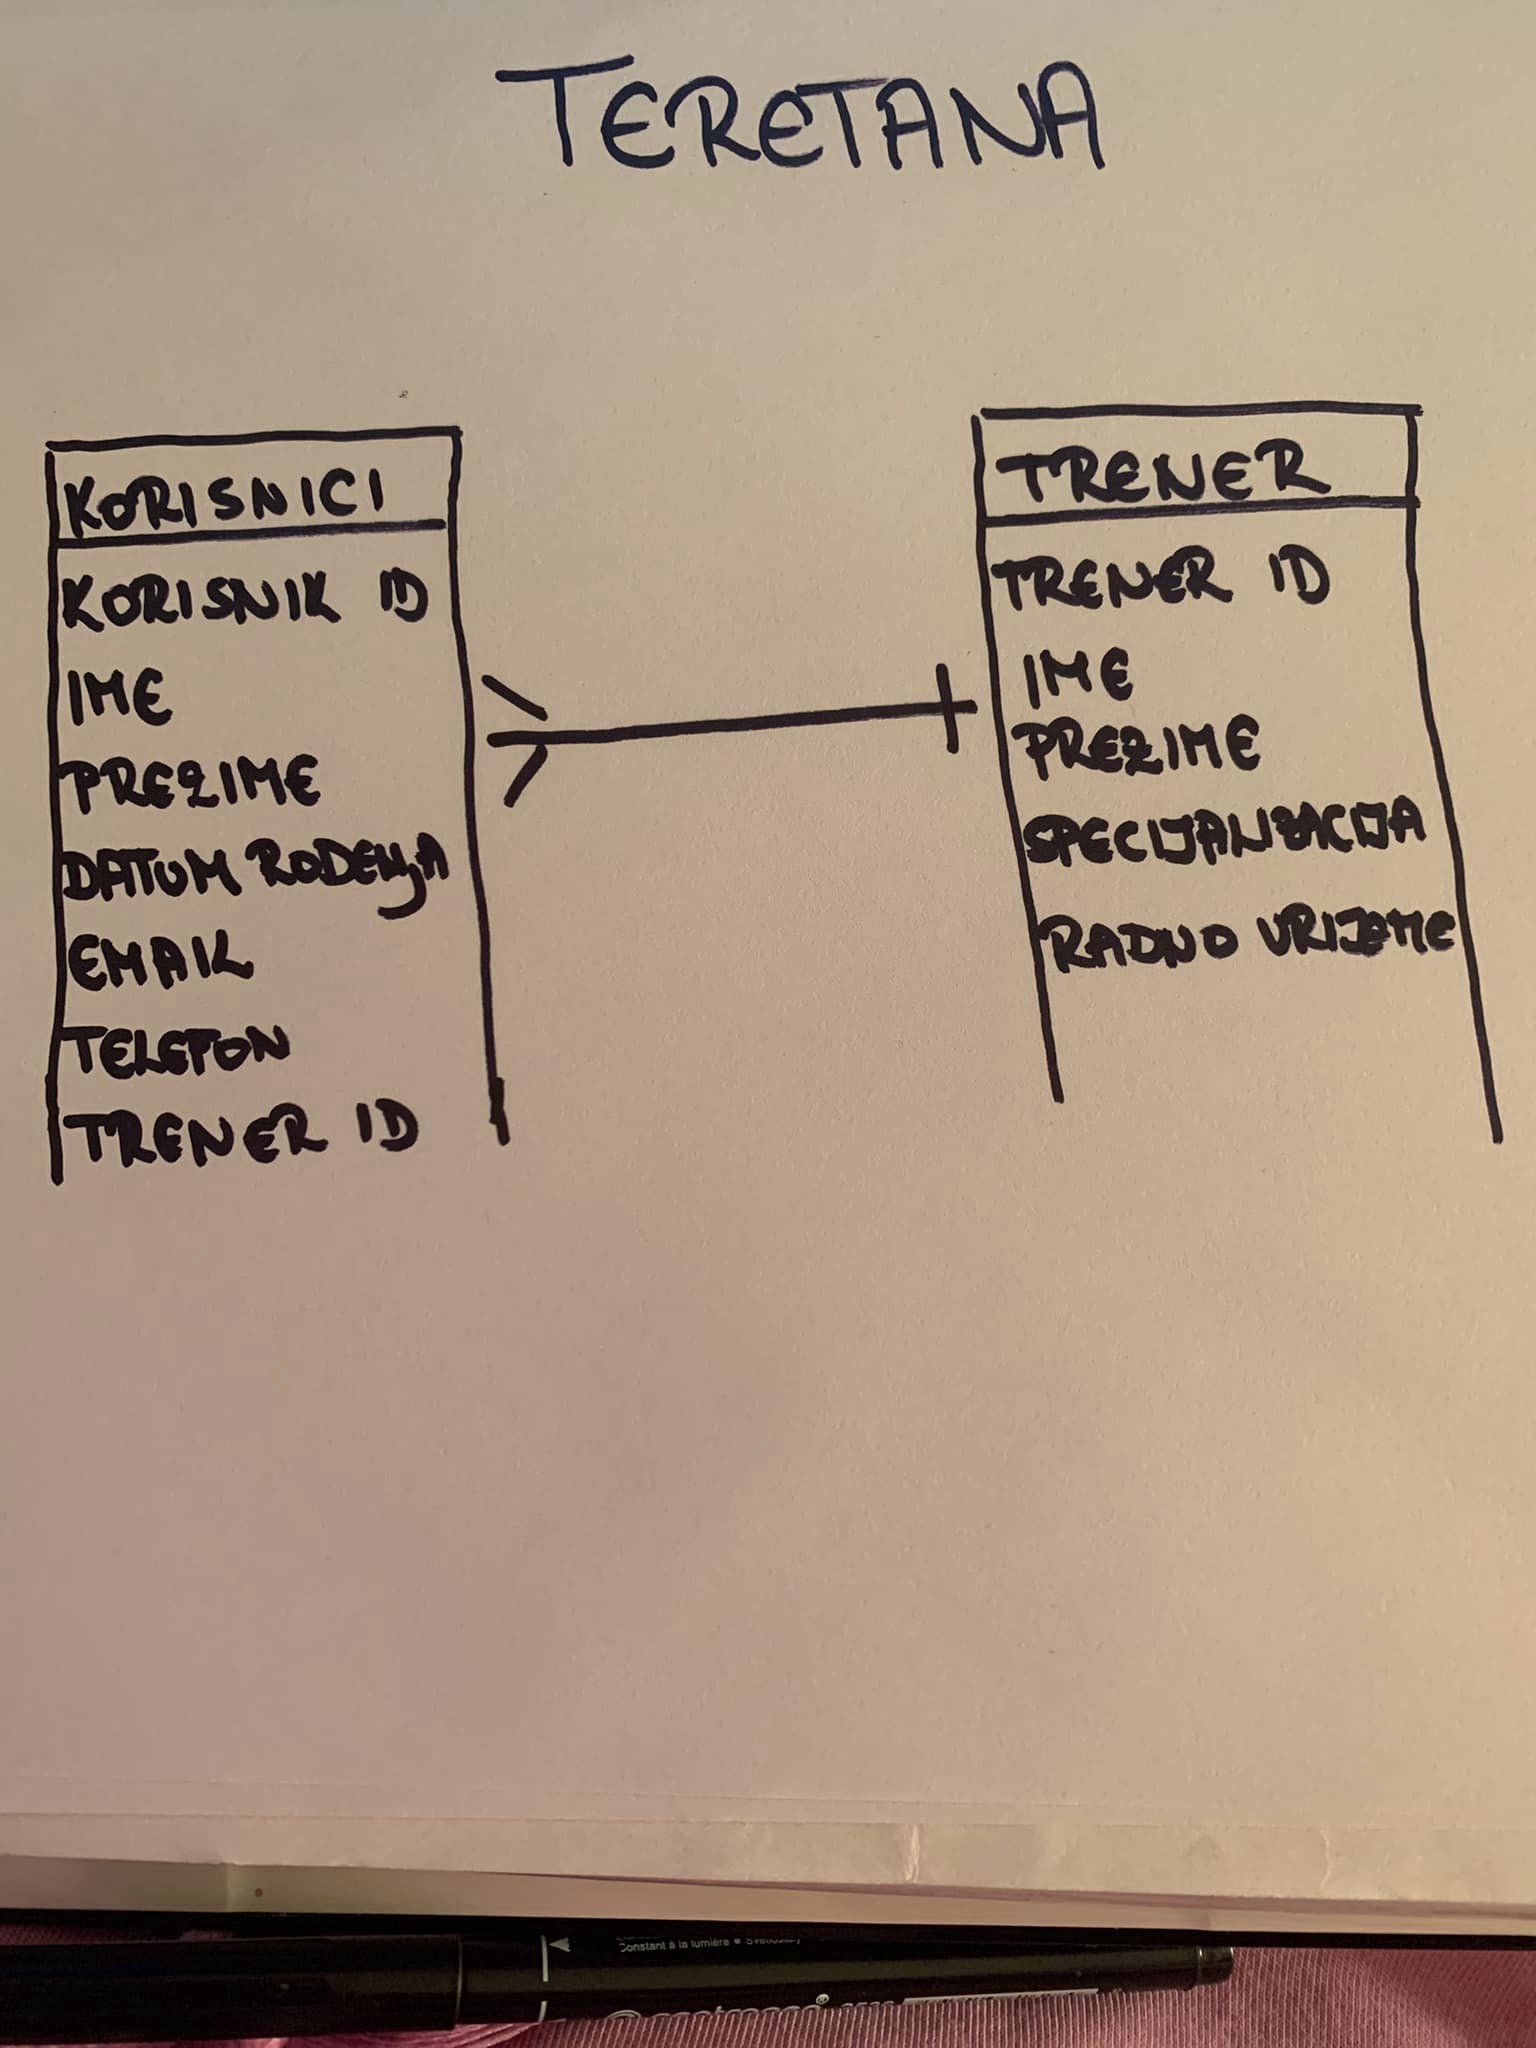 TERETANA
KORISNICI
KORISNIK ID
IME
PREZIME
DATUM ROĐENJA
EMAIL
TELEFON
TRENER ID
TRENER
TRENER ID
IME
PREZIME
SPECIJALIZACIJA
RADNO VRIJEME
Constant à la lumière